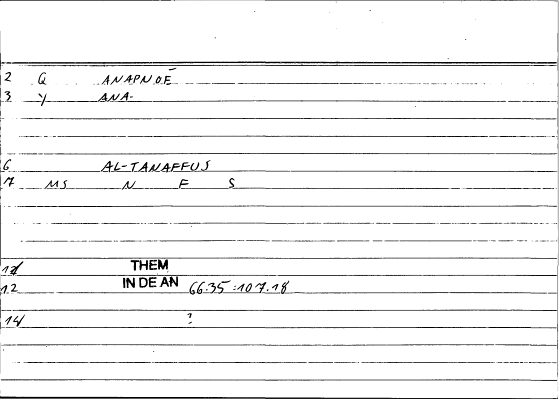 2 Q ANAPNOĒ
3 Y ANA-
6 AL-TANAFFUS
7 MS N F S
11 THEM
12 IN DE AN 66.35 :107.18
14 ?